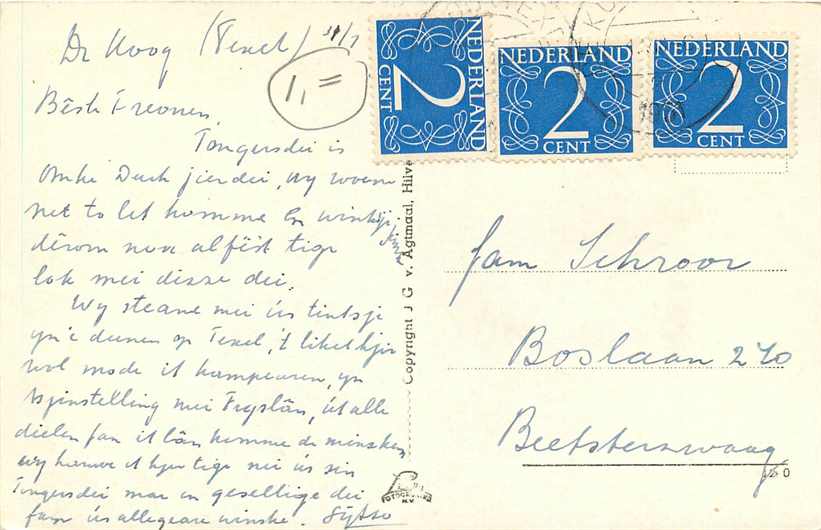 De Koog (Texel) 31/7
1,=
Bêste Freonen,
Tongersdei is
Omke Durk jierdei, wy woene
net to let komme en winskje
dêrom nou alfêst tige
lok mei disse dei.
Wy steane mei ús tintsje
yn'e dunen op Texel, 't liket hjir
wol mode it kampearen, yn
tsjinstelling mei Fryslân, út alle
dielen fan it lân komme de minsken
wy hawwe it hjir tige nei ús sin
Tongersdei mar in gesellige dei
fan ús allegeare winske. Sytso
NEDERLAND
2
CENT
NEDERLAND
2
CENT
NEDERLAND
2
CENT
Copyright J. G. v. Agtmaal, Hilve
Fam Schroor
Boslaan 270
Beetsterzwaag